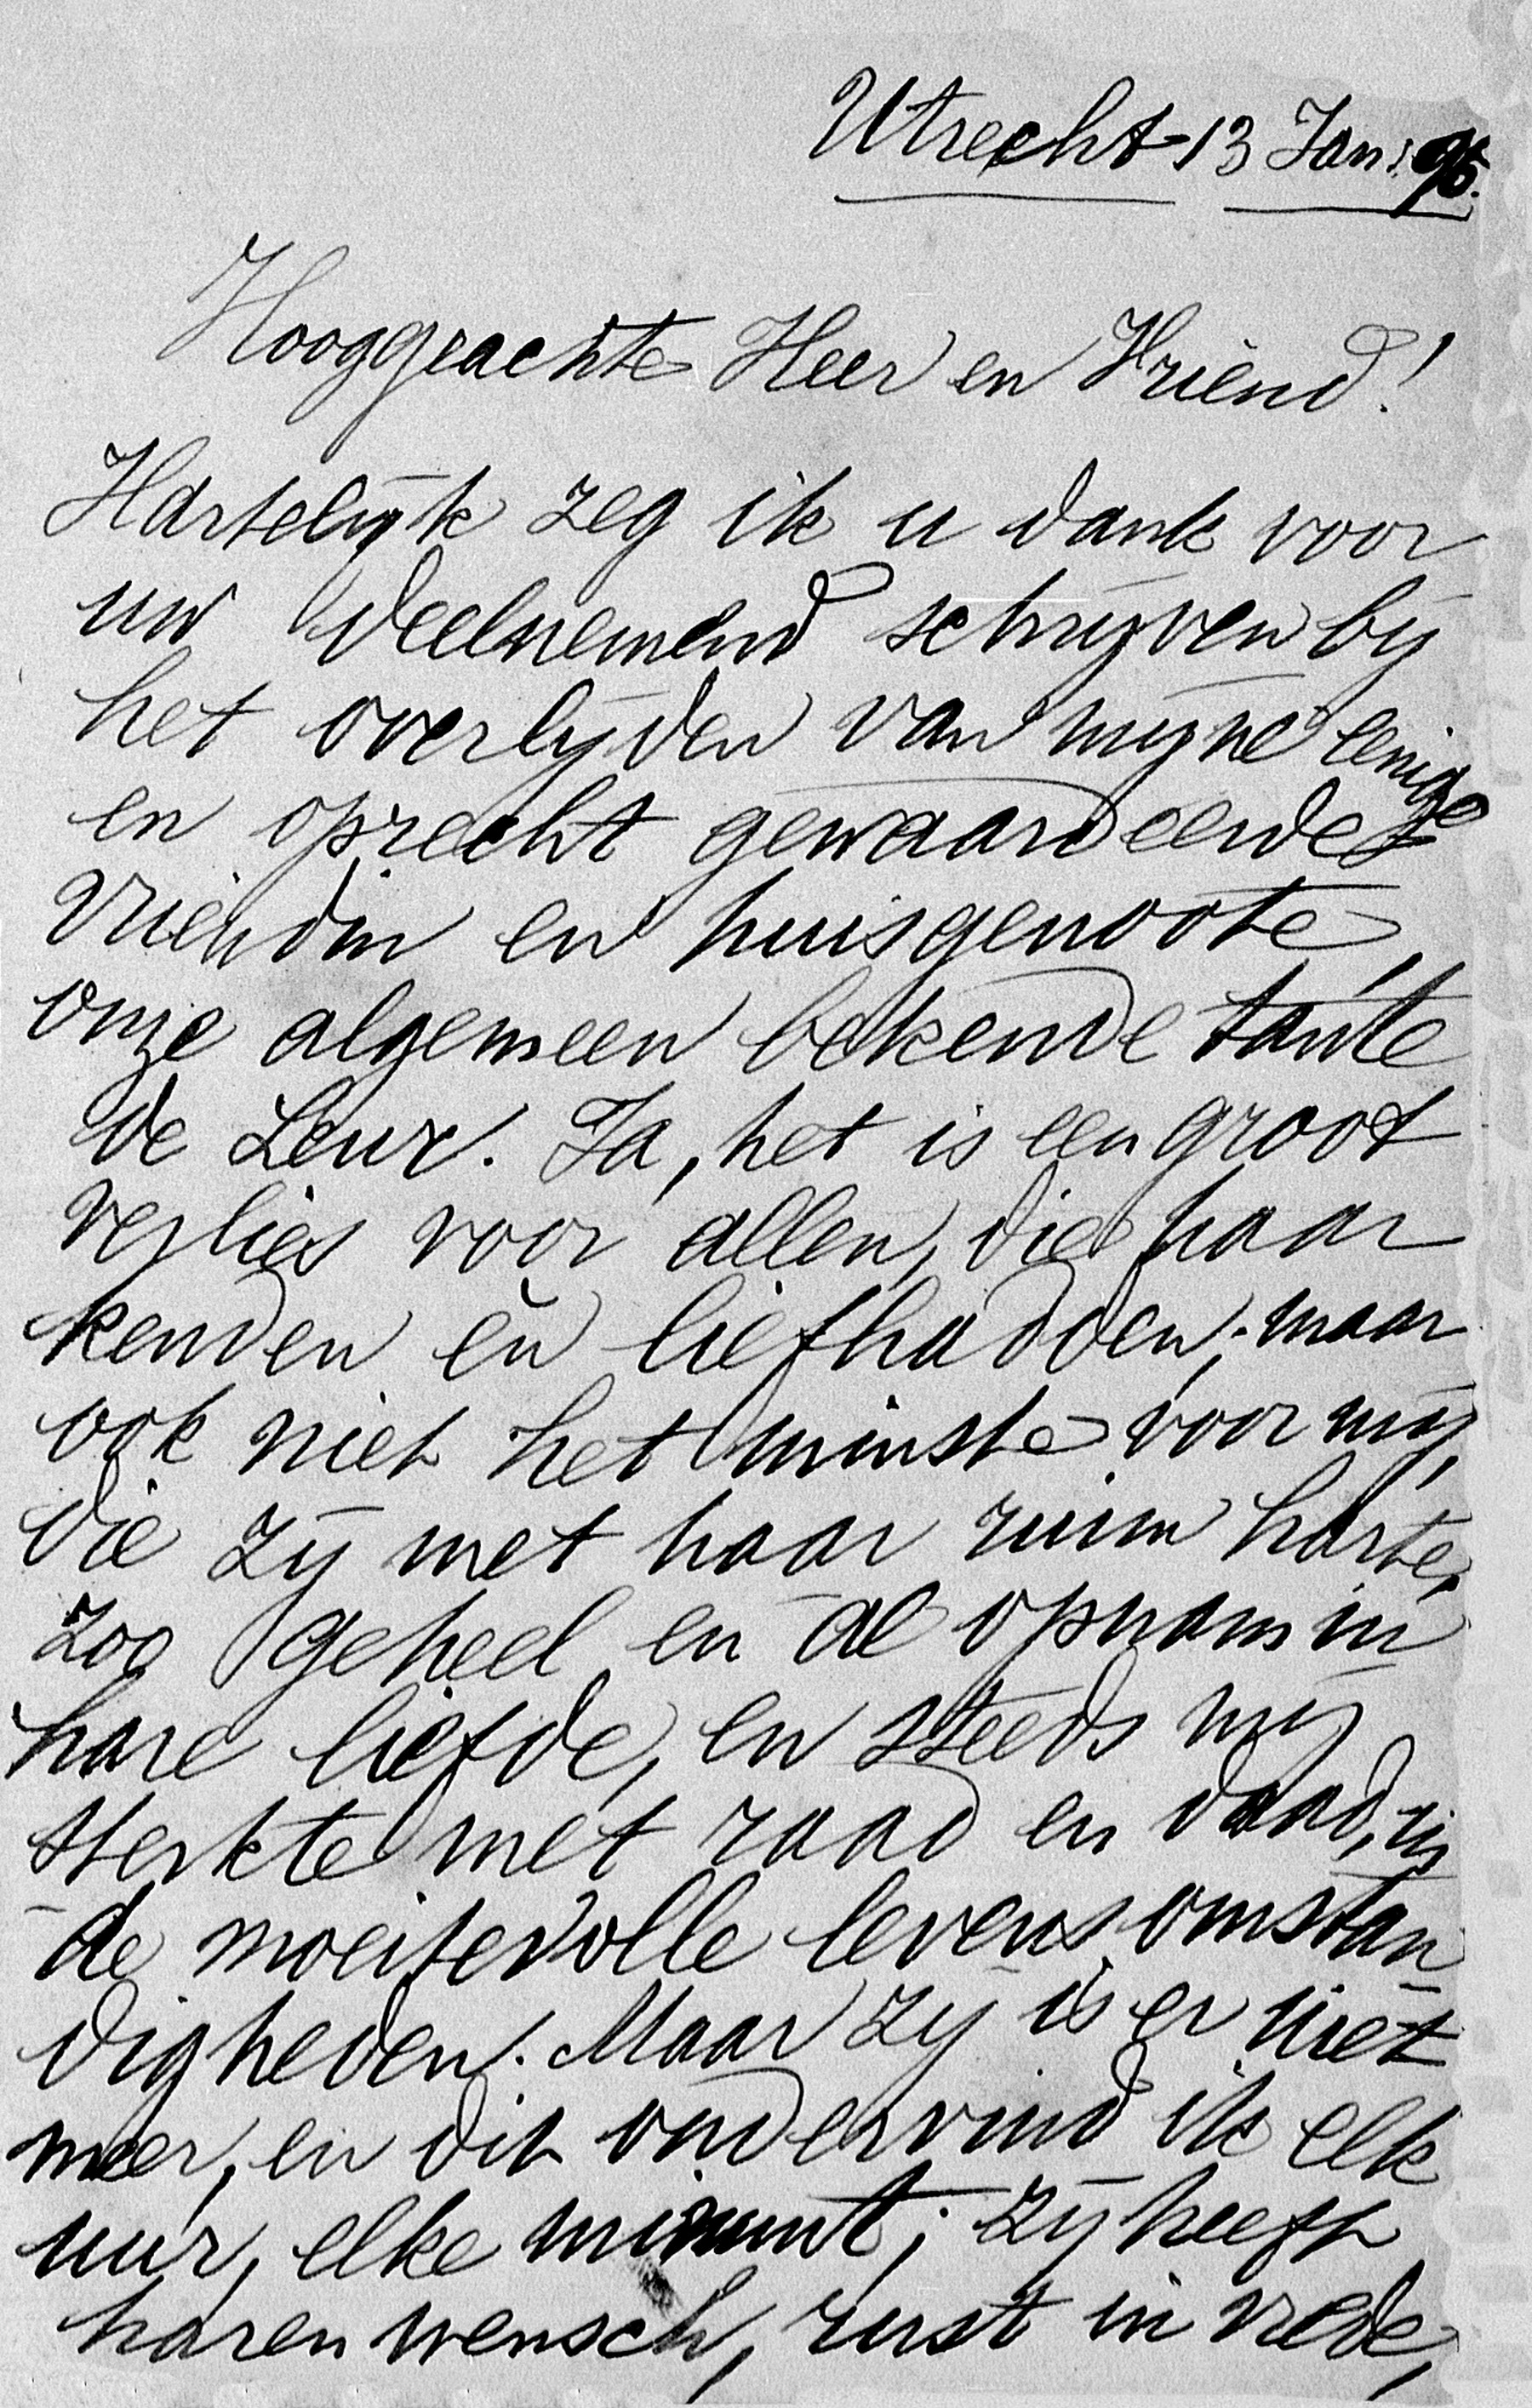 Utrecht 13 Jan. 95.
Hooggeachte Heer en Vriend!
Hartelijk zeg ik u dank voor
uw deelnemend schrijven bij
het overlijden van mijne eenige
en oprecht gewaardeerde
vriendin en huisgenoote,
onze algemeen bekende tante
de Leur. Ja, het is een groot
verlies voor allen, die haar
kenden en liefhadden; maar
ook niet het minste voor mij,
die zij met haar ruim harte,
zoo geheel en al opnam in
hare liefde, en steeds mij
sterkte met raad en daad, in
de moeitevolle levensomstan-
digheden. Maar zij is er niet
meer, en dit ondervind ik elk
uur, elke minuut; zij heeft
haren wensch, rust in vrede,